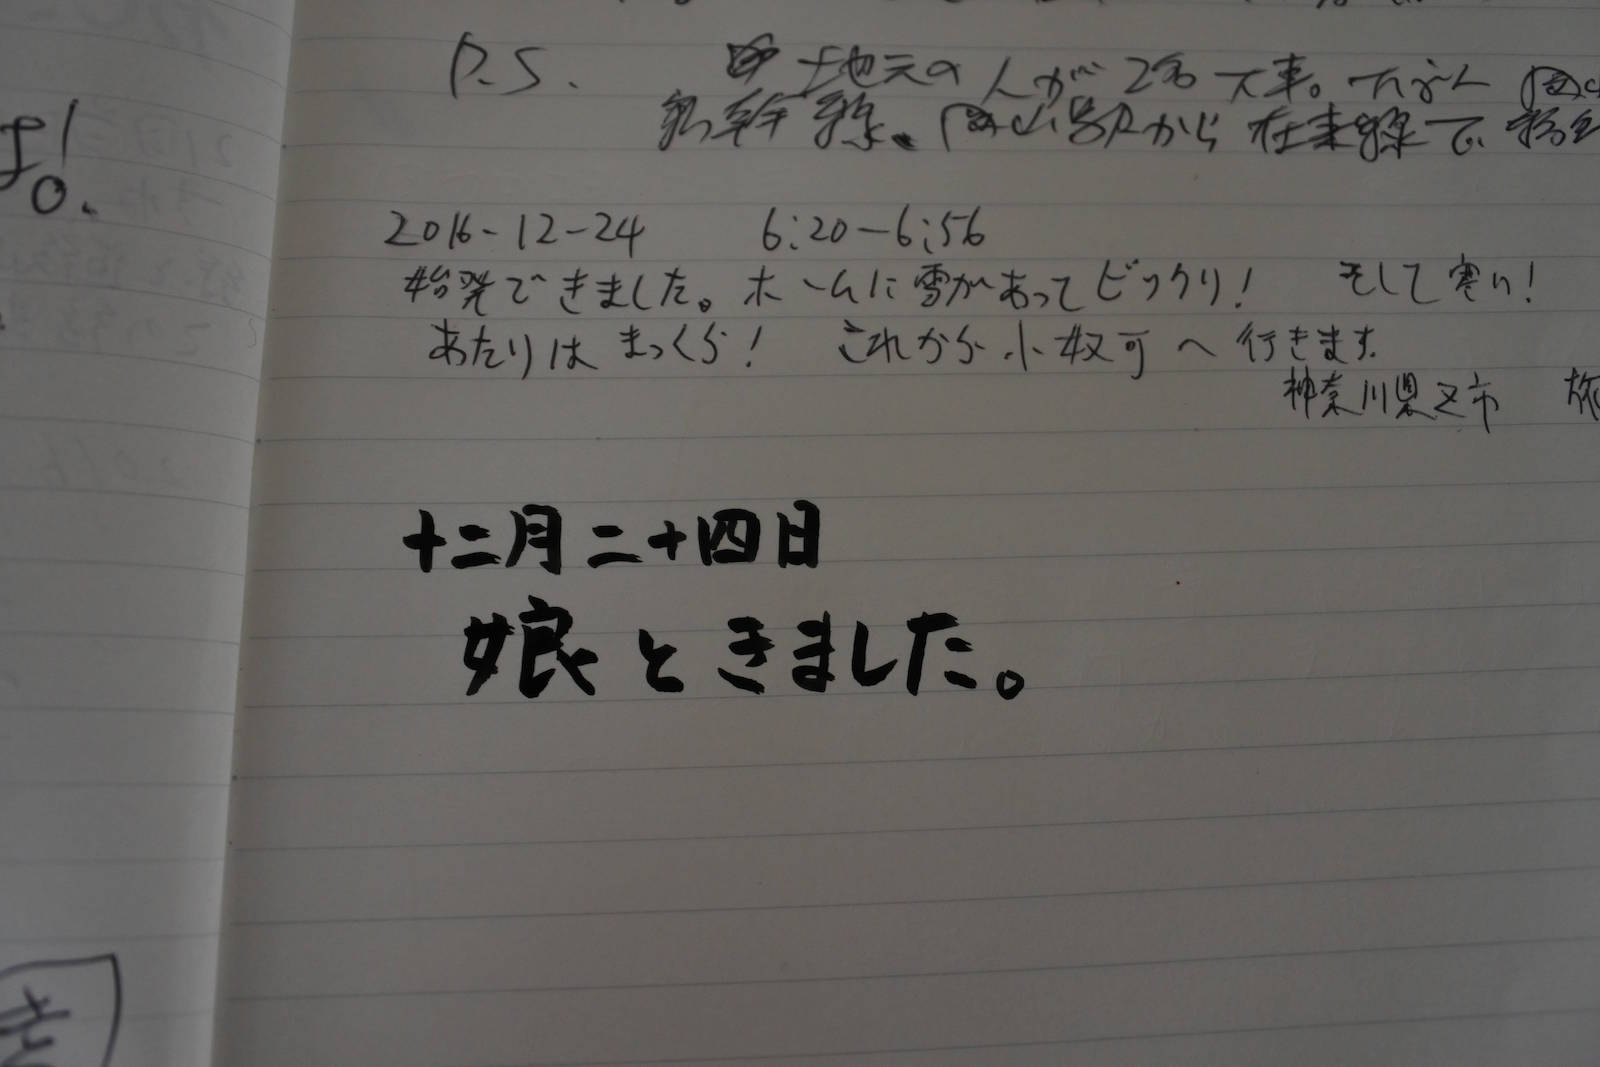 P.S. 地元の人が2名下車。たぶん岡山
新幹線。岡山駅から在来線で、
2016-12-24 6:20-6:56
始発できました。ホームに雪があってビックリ! そして寒い!
あたりはまっくら! これから小奴可へ行きます
神奈川県 市 旅
十二月二十四日
娘ときました。